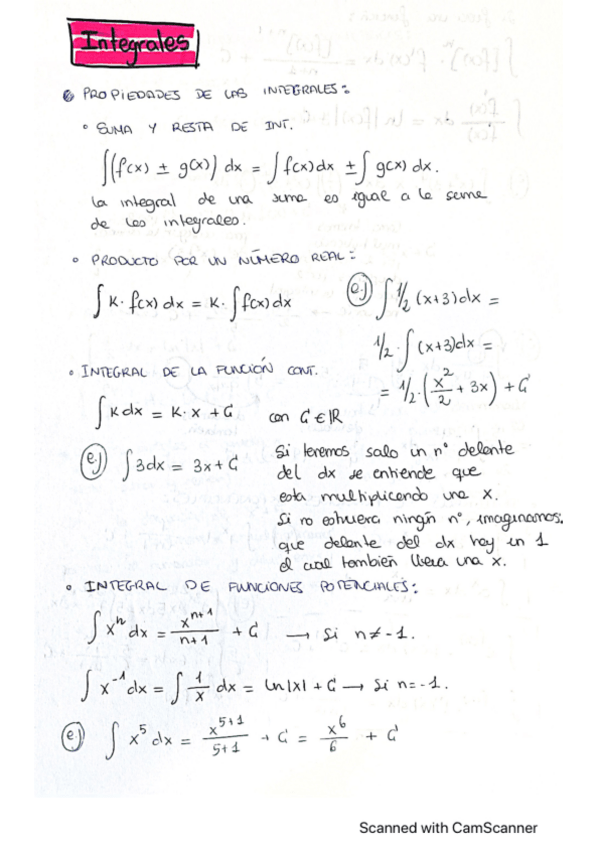 Integrales
PROPIEDADES DE LAS INTEGRALES:
• SUMA Y RESTA DE INT.
∫(f(x) ± g(x)) dx = ∫ f(x) dx ± ∫ g(x) dx.
la integral de una suma es igual a la suma
de las integrales.
• PRODUCTO POR UN NÚMERO REAL:
∫ K · f(x) dx = K · ∫ f(x) dx
ej) ∫ 1/2 (x+3) dx =
1/2 · ∫ (x+3) dx =
= 1/2 · (x²/2 + 3x) + C
• INTEGRAL DE LA FUNCIÓN CONT.
∫ K dx = K · x + C con C ∈ ℝ
ej) ∫ 3dx = 3x + C
Si tenemos solo un nº delante
del dx se entiende que
esta multiplicando una x.
Si no estuviera ningún nº, imaginamos
que delante del dx hay un 1
el cual también lleva una x.
• INTEGRAL DE FUNCIONES POTENCIALES:
∫ xⁿ dx = xⁿ⁺¹/n+1 + C → Si n ≠ -1.
∫ x⁻¹ dx = ∫ 1/x dx = ln|x| + C → Si n = -1.
ej) ∫ x⁵ dx = x⁵⁺¹/5+1 + C = x⁶/6 + C
Scanned with CamScanner